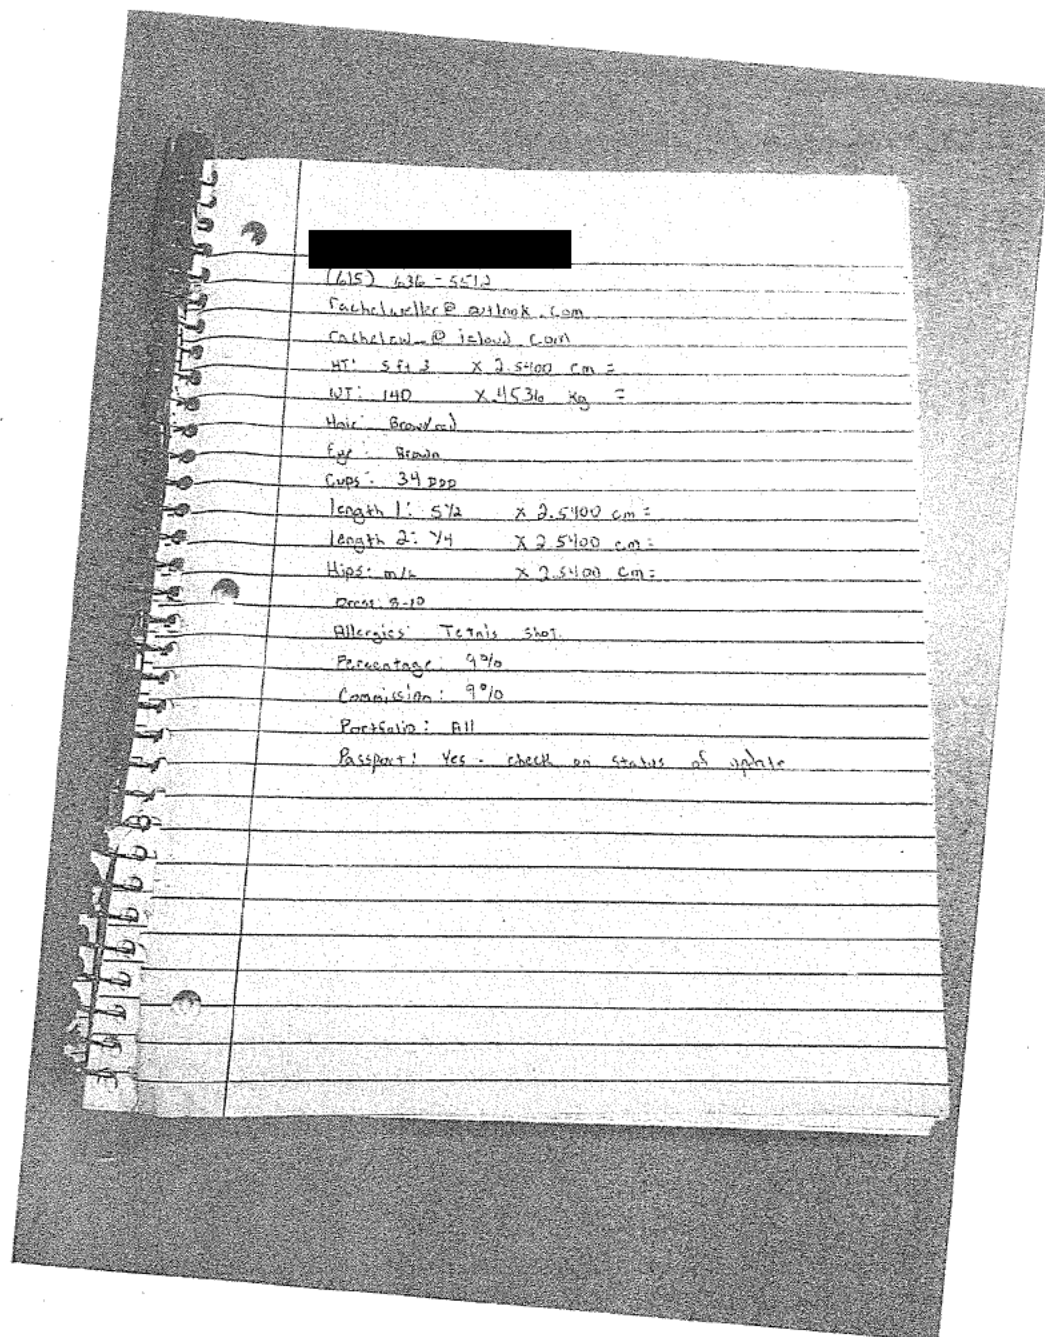 (615) 636-5512
rachelweller@outlook.com
rachelew@icloud.com
HT: 5 ft 3 x 2.5400 cm =
WT: 140 x .4536 kg =
Hair: Brown/red
Eye: Brown
Cups: 34 DDD
length 1: 5 1/2 x 2.5400 cm =
length 2: 1/4 x 2.5400 cm =
Hips: m/L x 2.5400 cm =
Dress: 8-10
Allergies: Tetnis shot.
Percentage: 9%
Commission: 9%
Portfolio: All
Passport: Yes - check on status of update